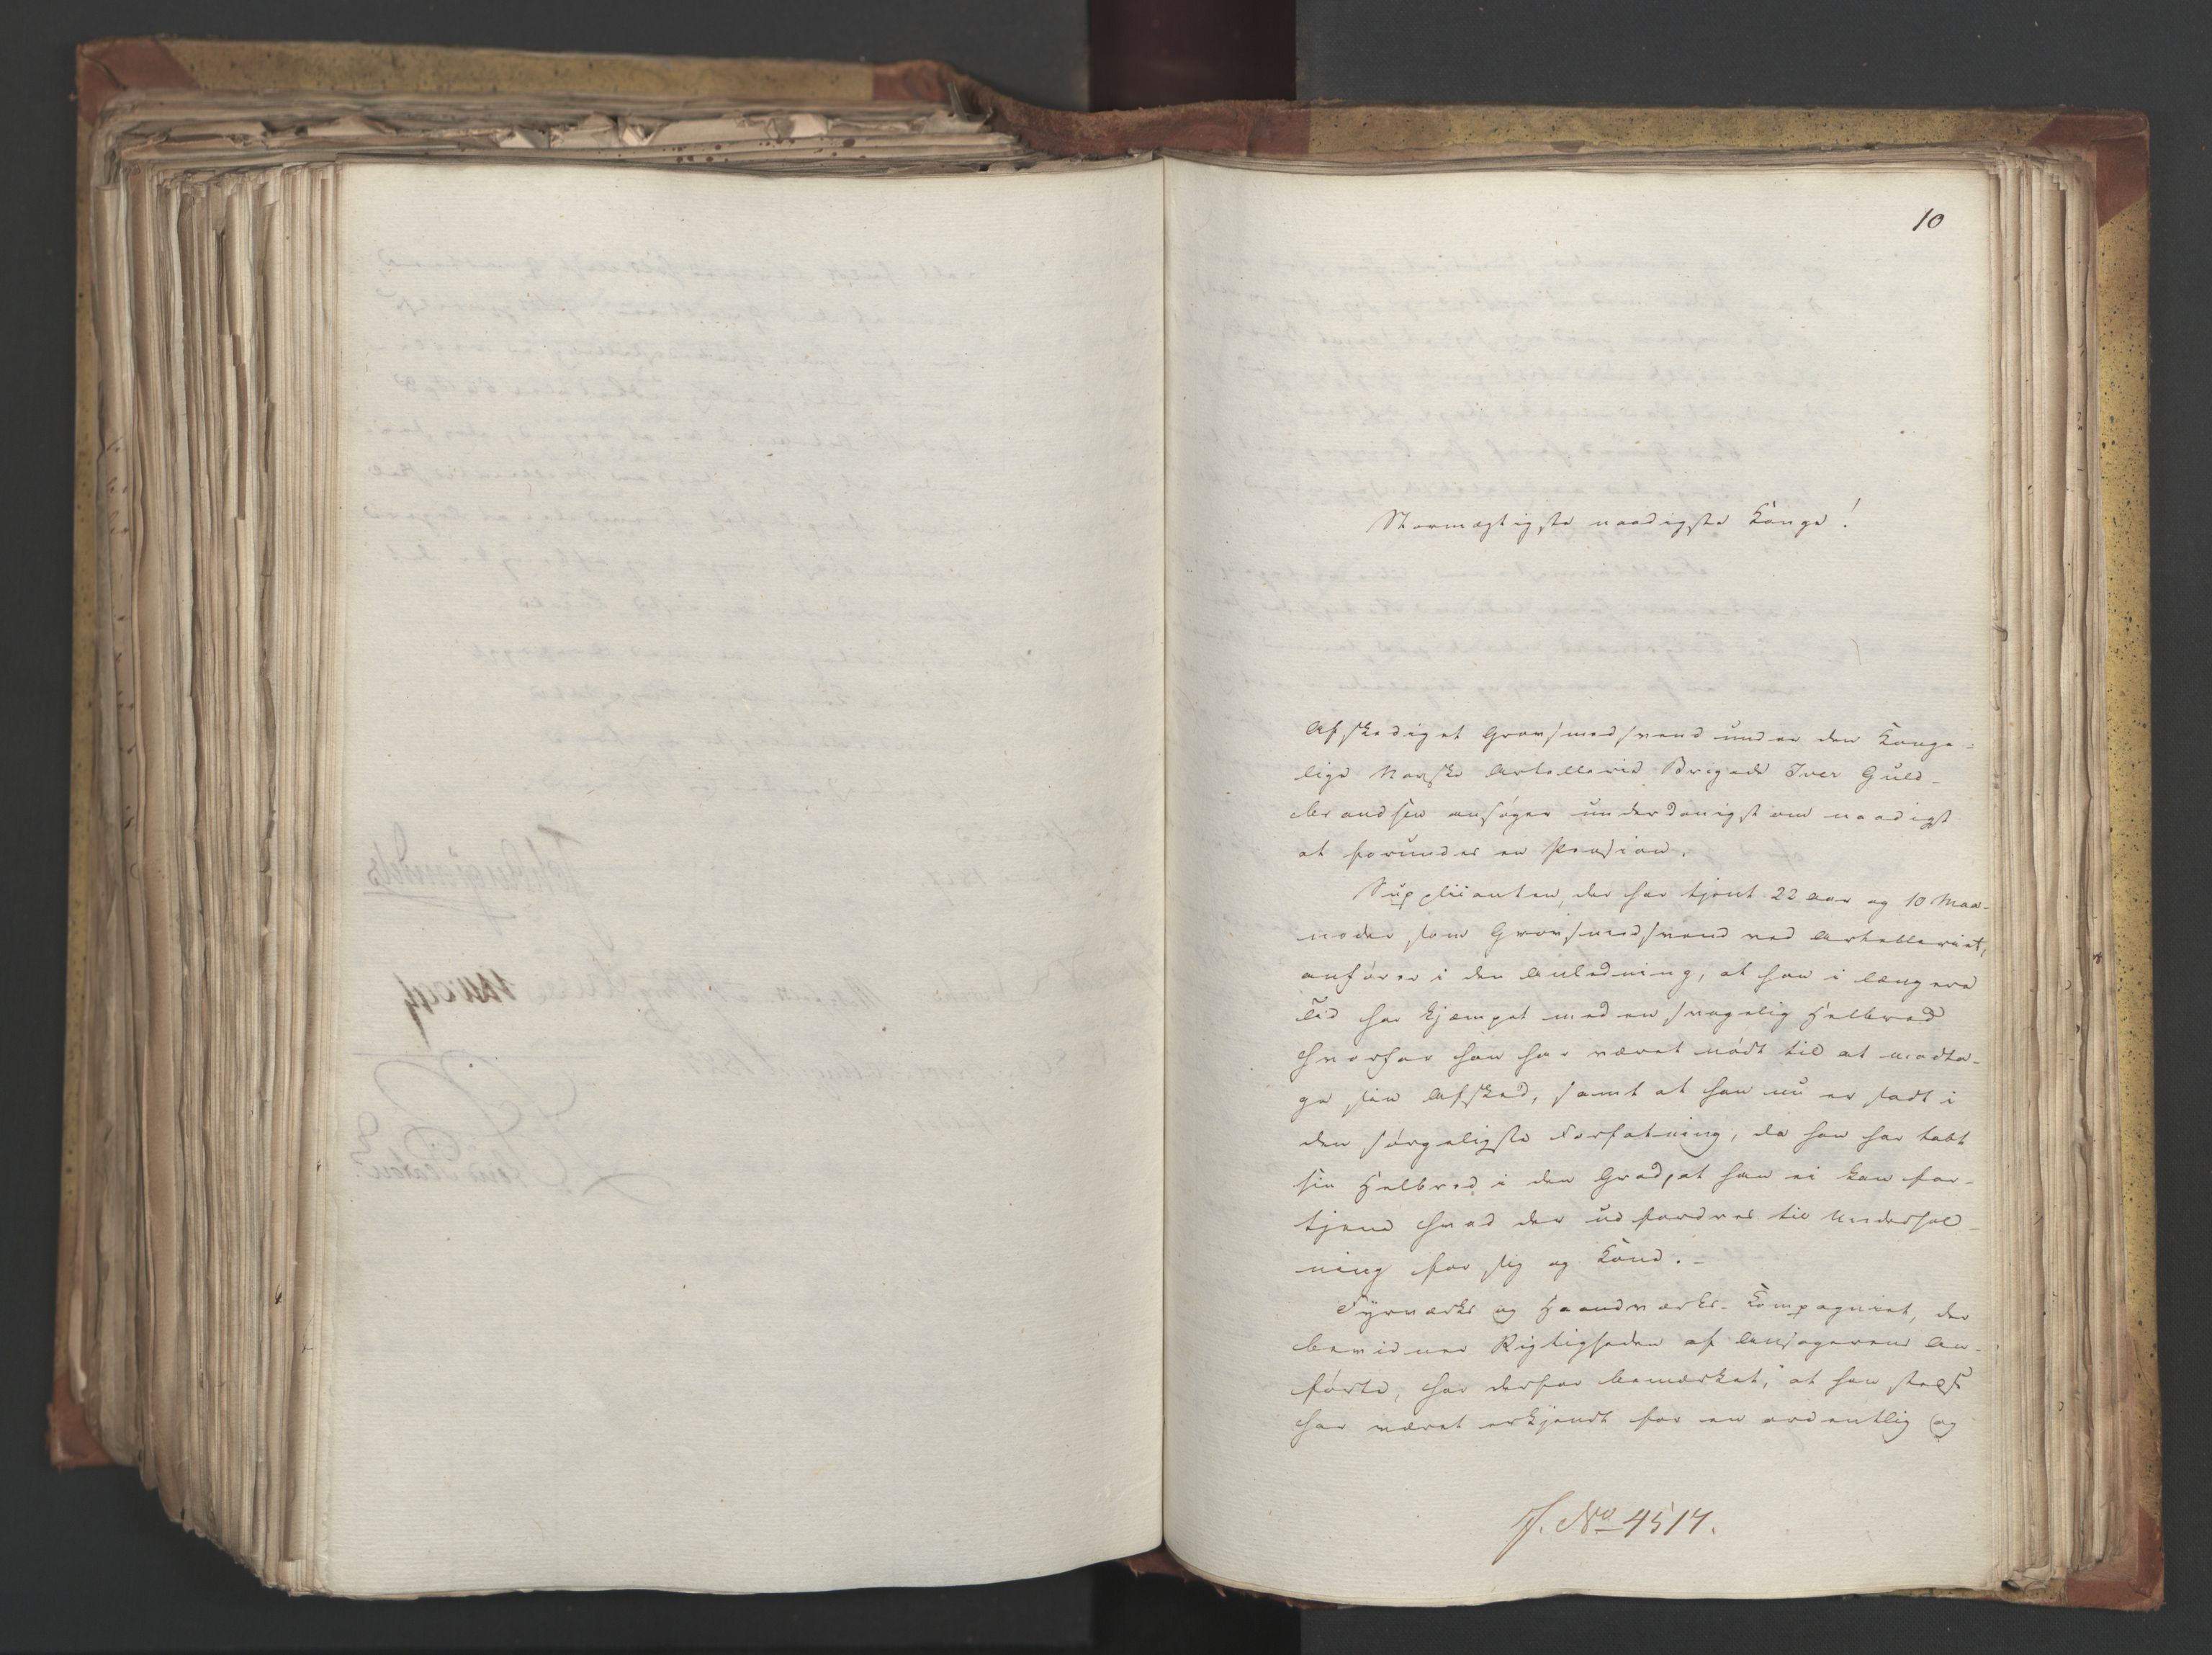 10
Stormægtigste naadigste Konge!
Afskediget Grovsmedsvend under den Konge-
lige Norske Artellerie Brigade Iver Guld-
brandsen ansøger underdanigst om naadigst
at forundes en Pension.
Supplicanten, der har tjent 22 Aar og 10 Maa-
neder som Grovsmedsvend ved Artelleriet,
anfører i den Anledning, at han i længere
Tid har kjæmpet med en svagelig Helbred
hvorfor han har været nødt til at modta-
ge sin Afsked, samt at han nu er sadt i
den sørgeligste Forfatning, da han har tabt
sin Helbred i den Grad, at han ei kan for-
tjene hvad der udfordres til Underhol-
ning for sig og Kone.-
Fyrværks og Haandværks-Kompagniet, der
bevidner Rigtigheden af Ansøgerens An-
førte, har derfor bemærket, at han stedse
har været erkjendt for en ordentlig og
J. No 4517.